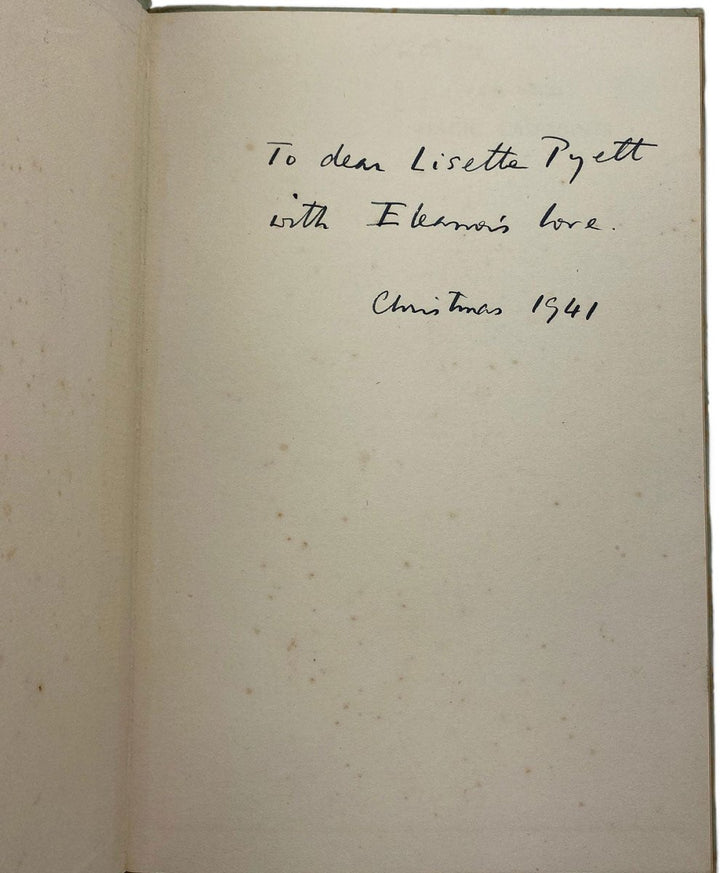 To dear Lisette Pyett
with Eleanor's love.
Christmas 1941